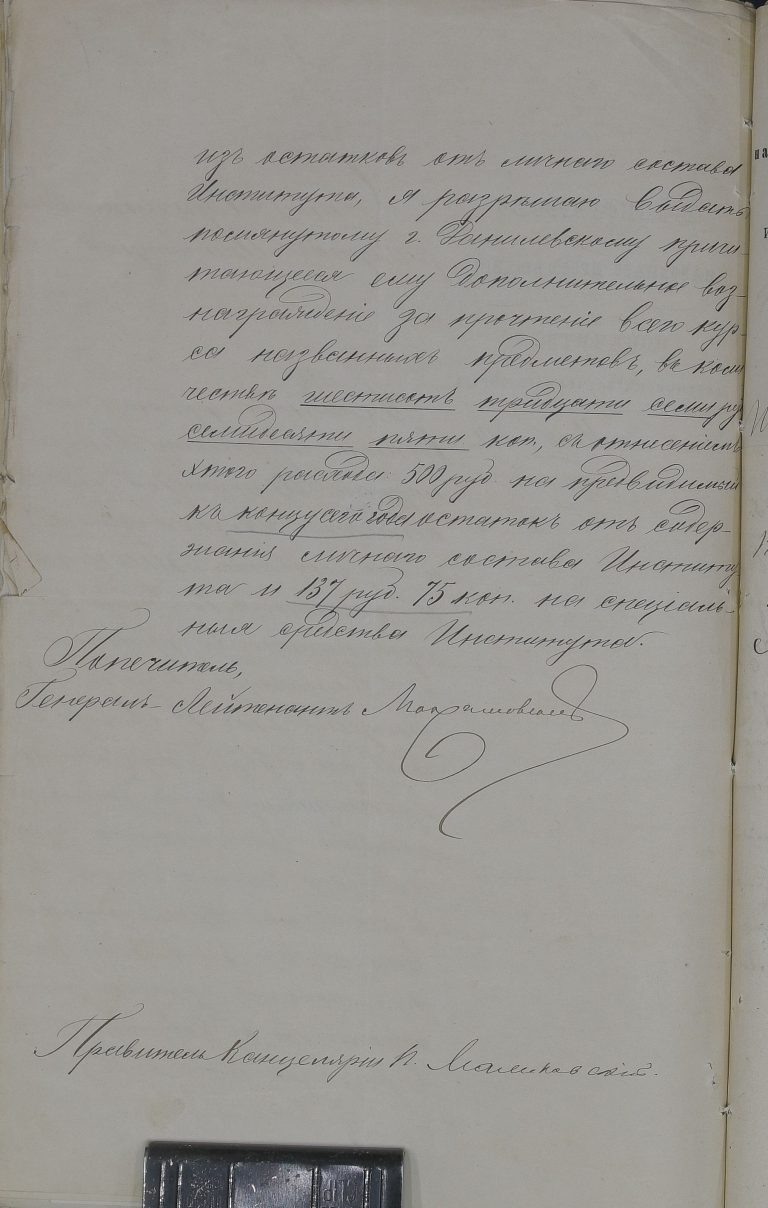 изъ остатковъ отъ личнаго состава
Института, я разрѣшаю выдать
помянутому г. Данилевскому причи-
тающееся ему дополнительное воз-
награжденіе за прочтеніе всего кур-
са названныхъ предметовъ, въ коли
чествѣ шестисотъ тридцати семи ру
семидесяти пяти коп., съ отнесеніемъ
этого расхода: 500 руб. на предвидимый
къ концу сего года остатокъ отъ содер-
жанія личнаго состава Институ
та и 137 руб. 75 коп. на спеціаль-
ныя средства Института.
Попечитель,
Генералъ-Лейтенантъ
Правитель Канцеляріи